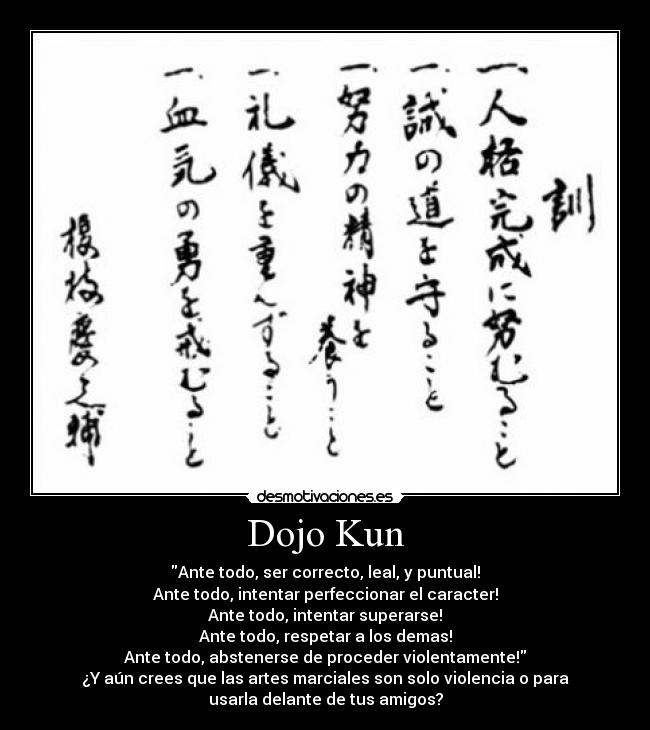 訓
一、人格完成に努むること
一、誠の道を守ること
一、努力の精神を養うこと
一、礼儀を重んずること
一、血気の勇を戒むること
榎枝慶之輔
desmotivaciones.es
Dojo Kun
"Ante todo, ser correcto, leal, y puntual!
Ante todo, intentar perfeccionar el caracter!
Ante todo, intentar superarse!
Ante todo, respetar a los demas!
Ante todo, abstenerse de proceder violentamente!"
¿Y aún crees que las artes marciales son solo violencia o para
usarla delante de tus amigos?